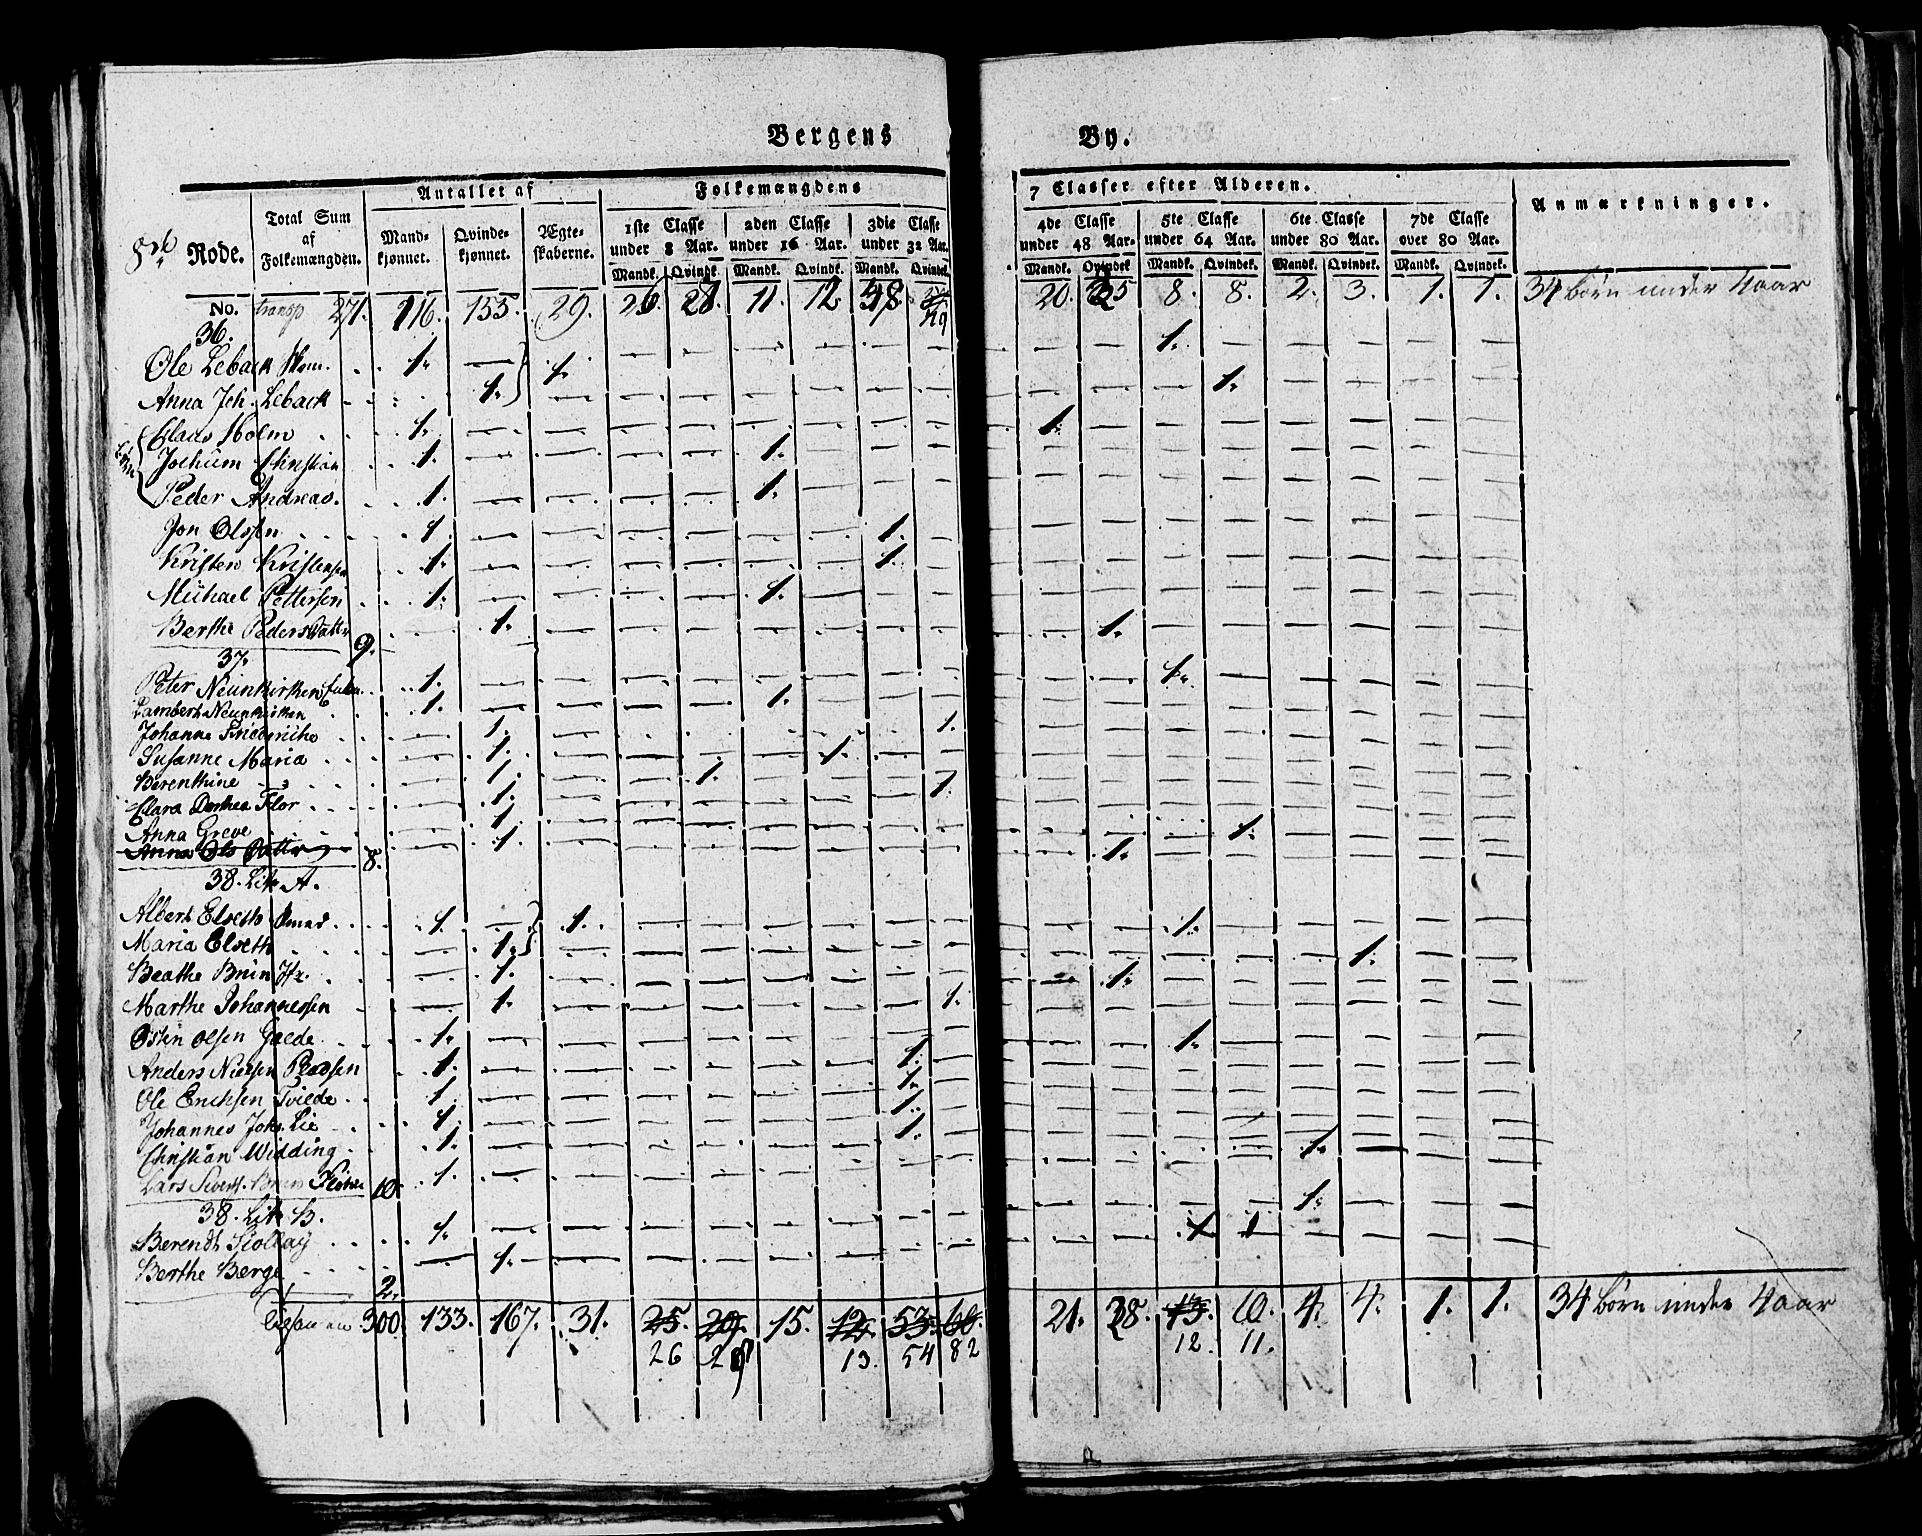 Bergens By.
Antallet af Folkemængdens 7 Classer efter Alderen. Anmærkninger.
8de Rode. Total Sum af Folkemængden. Mandkjønnet. Qvindekjønnet. Ægteskaberne. 1ste Classe under 8 Aar. 2den Classe under 16 Aar. 3die Classe under 32 Aar. 4de Classe under 48 Aar. 5te Classe under 64 Aar. 6te Classe under 80 Aar. 7de Classe over 80 Aar.
Mandk. Qvindk. Mandk. Qvindk. Mandk. Qvindek. Mandk. Qvindek. Mandk. Qvindek. Mandk. Qvindek. Mandk. Qvindek.
No. transp 271. 116. 155. 29. 26. 28. 11. 12. 48. 20. 25 8. 8. 2. 3. 1. 1. 34 börn under 4 aar
36.
Ole Leback 1. — 1. — — — — — — — — 1. — — — — —
Anna Joh. Leback 1. — — — — — — — — — 1. — — — —
Claus Holm 1. — — — — — — — — 1. — — — — — — —
Jochum Christian 1. — — — — 1. — — — — — — — — — — —
Peder Andreas. 1. — — — — 1. — — — — — — — — — — —
Jon Olssen 1. — — — — — — 1. — — — — — — — — —
Kristen Kristensen 1. — — — — — — 1. — — — — — — — — —
Michael Pettersen 1. — — — — 1. — — — — — — — — — — —
Berthe Peders Dattr 9. — 1. — — — — — — — — 1. — — — — — —
37.
Peter Neunkirchen 1. — — — — — — — — — — 1. — — — — —
Lambert Neunkirchen 1. — — — — 1. — — — — — — — — — — —
Johanne Friderriche — 1. — — — — — — 1. — — — — — — — —
Susanne Maria — 1. — — — — 1. — — — — — — — — — —
Berenthine — 1. — — 1. — — — — — — — — — — — —
Clara Dorthea Flor — 1. — — — — — — 1. — — — — — — — —
Anna Greve — 1. — — — — — — — — — — 1. — — — —
Anna Ols Dattr 8. — 1. — — — — — — — — 1. — — — — — —
38. Litr A.
Albert Elseth 1. — 1. — — — — — — — — 1. — — — — —
Maria Elseth — 1. — — — — — — — — — — — — 1. — —
Beathe Brun Jfr. — 1. — — — — — — — — 1. — — — — — —
Marthe Johannessen — 1. — — — — — — 1. — — — — — — — —
Östen Olsen Gjelde 1. — — — — — — — — — — 1. — — — — —
Anders Nielsen 1. — — — — — — 1. — — — — — — — — —
Ole Erichsen Tvilde 1. — — — — — — 1. — — — — — — — — —
Johannes Joh. Lie 1. — — — — — — 1. — — — — — — — — —
Christian Widding 1. — — — — — — — — — — — — 1. — — —
Lars 10. 1. — — — — — — — — — — — — 1. — — —
38. Litr B.
Berendt 1. — — — — — — — — — — 1 — — — — —
Berthe Berge 2. — 1. — — — — — — — — — — 1 — — — —
300 133. 167. 31. 25. 29. 15. 12. 53. 60. 21. 28. 13. 10. 4. 4. 1. 1. 34 börn under 4 aar
26 28 13. 54 82 12. 11.